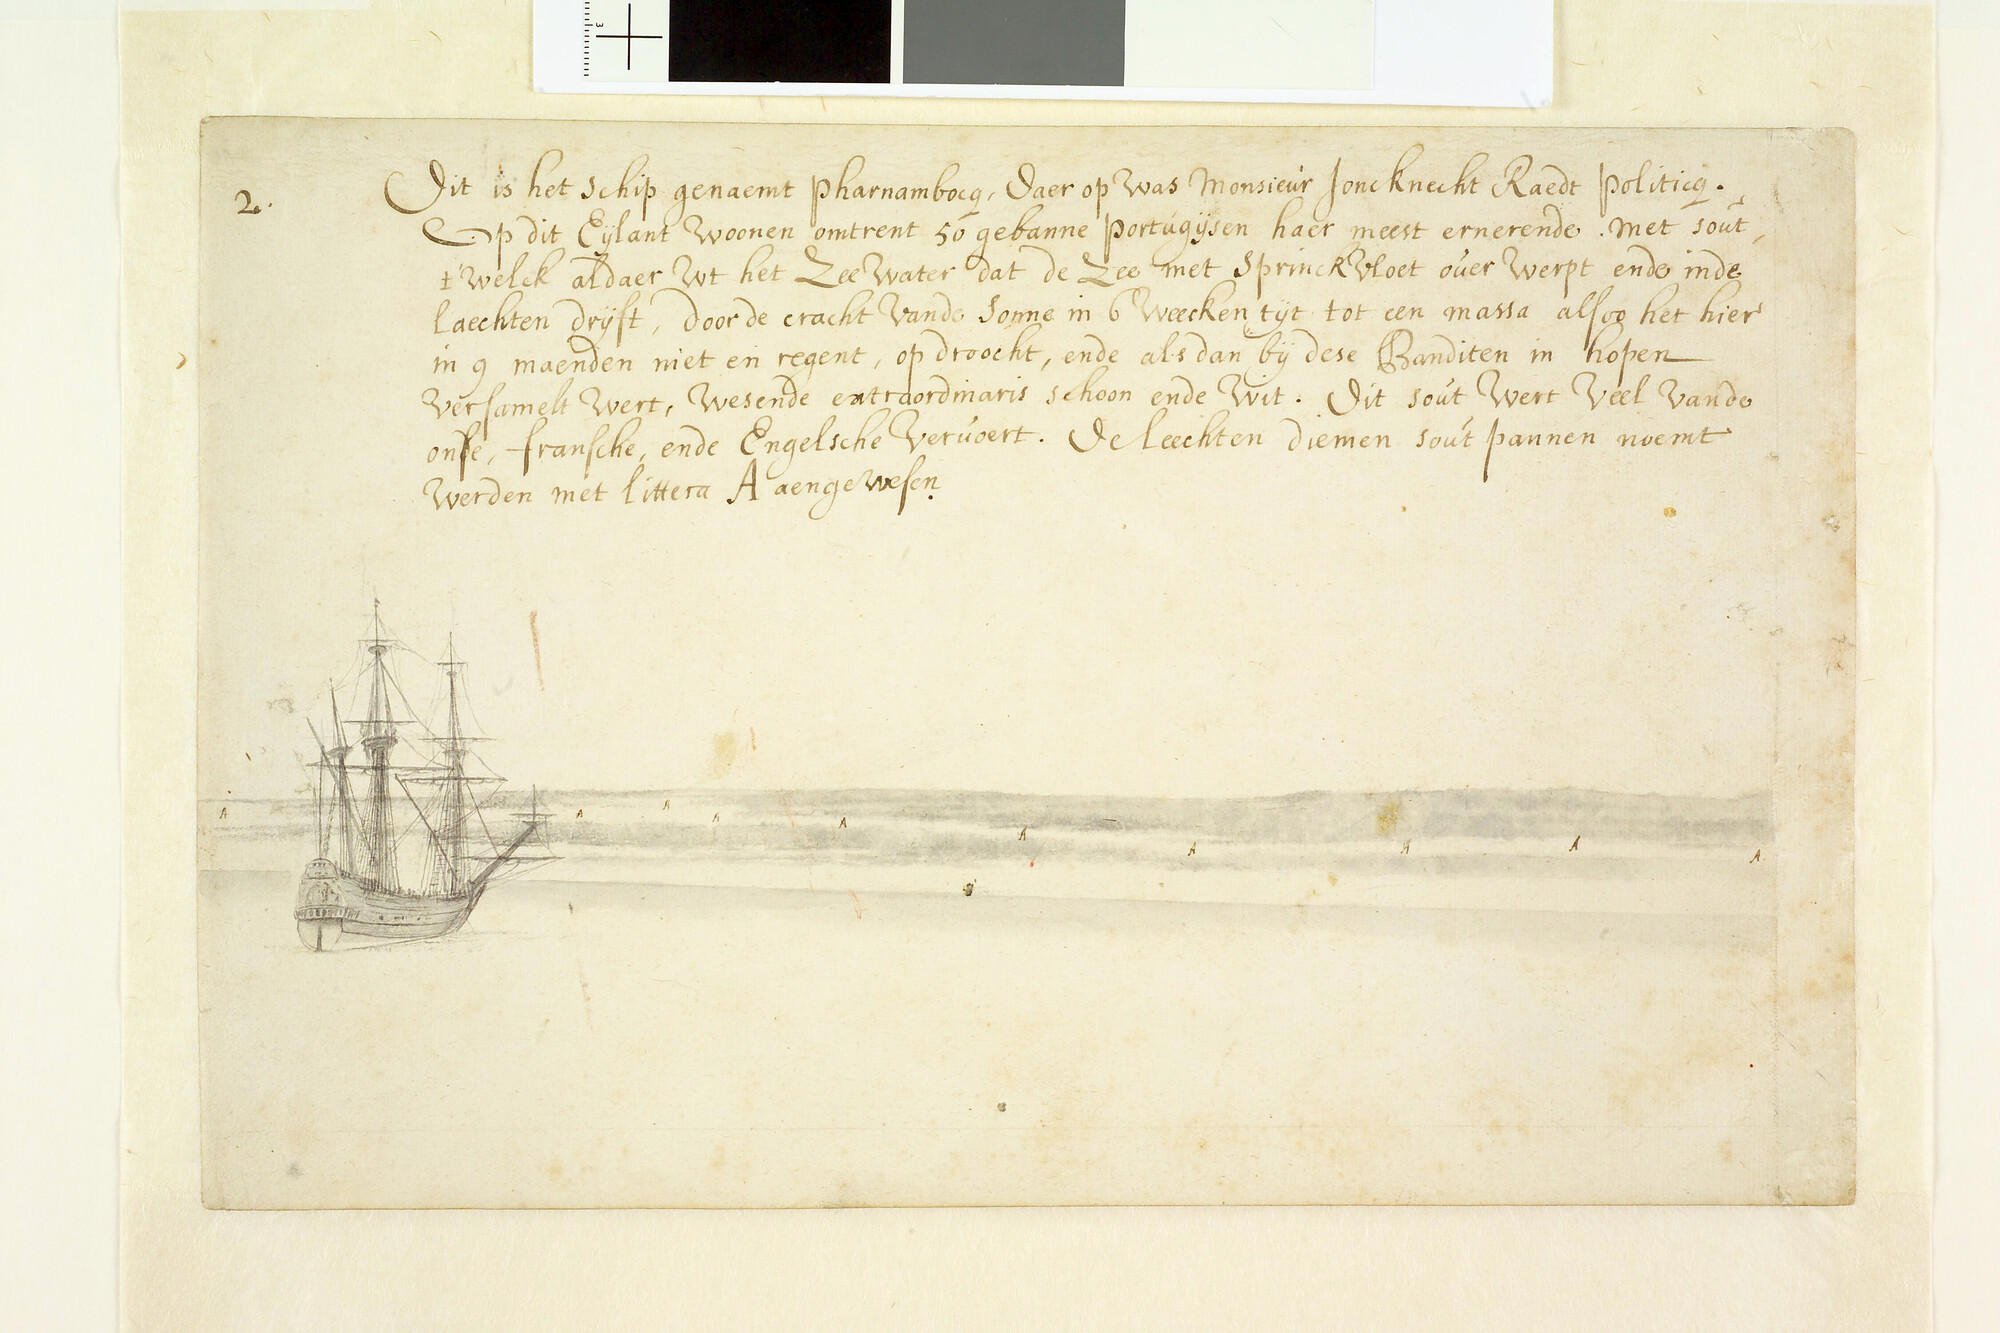 2.
Dit is het schip genaemt Pharnambocq, daer op was Monsieur Jonc knecht Raedt Politicq.
Op dit Eylant woonen omtrent 50 gebanne Portugijsen haer meest ernerende . met sout,
t'welck aldaer wt het Zee water dat de Zee met sprinckvloet over werpt ende inde
laechten drijft, door de cracht vande Sonne in 6 weecken tijt tot een massa alsoo het hier
in 9 maenden niet en regent, op droocht, ende als dan bij dese Banditen in hopen
versamelt wert, wesende extraordinaris schoon ende wit. Dit sout wert veel vande
onse, fransche, ende Engelsche vervoert. De leechten diemen sout pannen noemt
werden met littera A aengewesen
A A A A A A A A A A